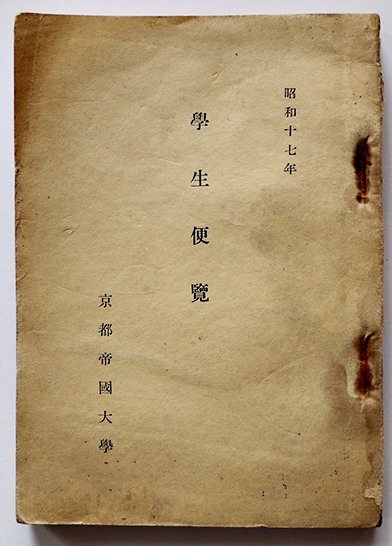 昭和十七年
學生便覽
京都帝國大學